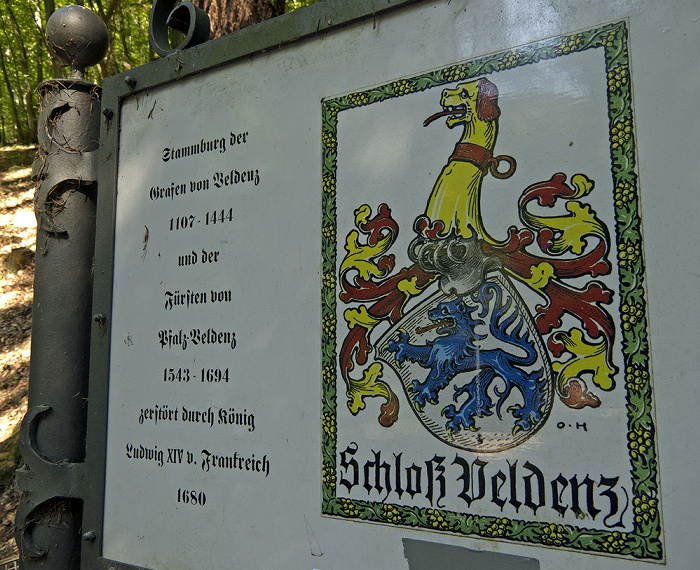 Stammburg der
Grafen von Veldenz
1107-1444
und der
Fürsten von
Pfalz-Veldenz
1543-1694
zerstört durch König
Ludwig XIV v. Frankreich
1680
O.H
Schloß Veldenz